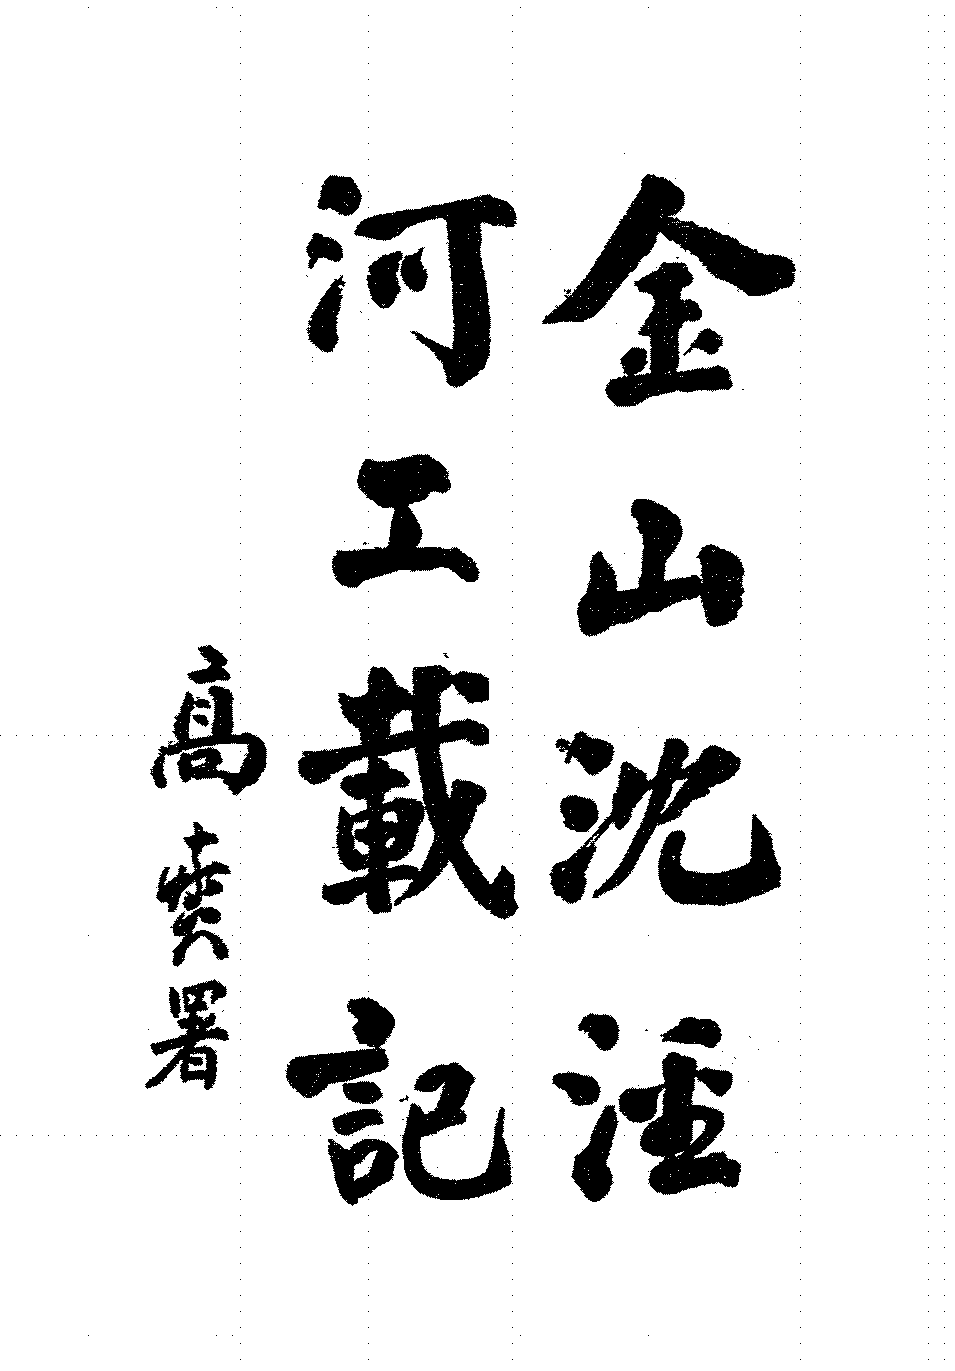 金山沈涇
河工載記
高燮署